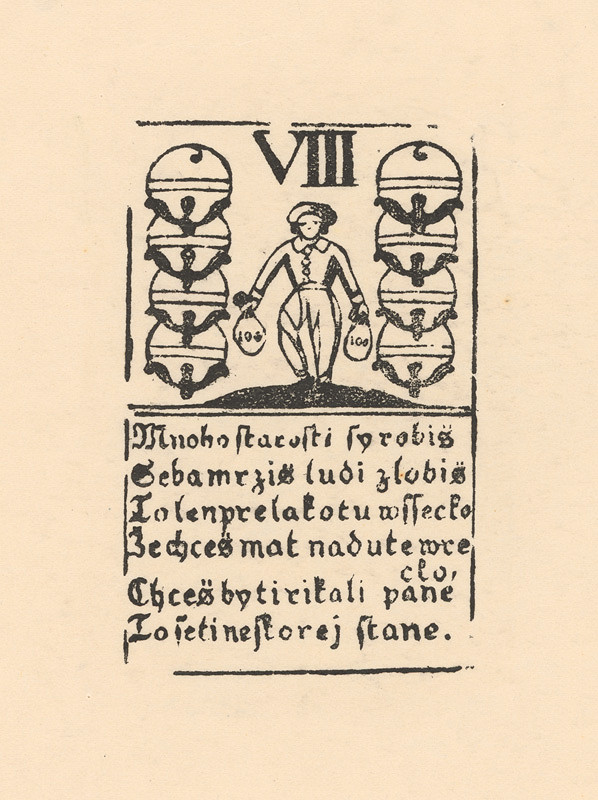 VIII
100
Mnoho ſtaroſti ſy robiš
Sebamrziš ludi zlobiš
To lenprelakotu wſſecko
Žechceš mat nadutewre
cko,
Chceš bytirikali pane
To ſetineſkorej ſtane.